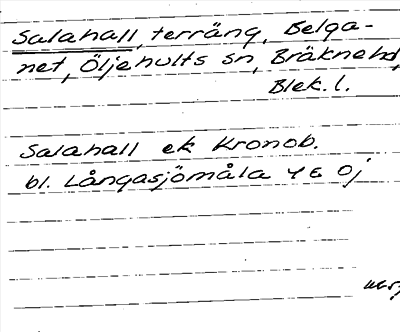 Salahall, terräng, Belga-
net, Öljehults sn, Bräkne hd,
Blek. l.
Salahall ek Kronob.
bl. Långasjömåla 4 E Oj